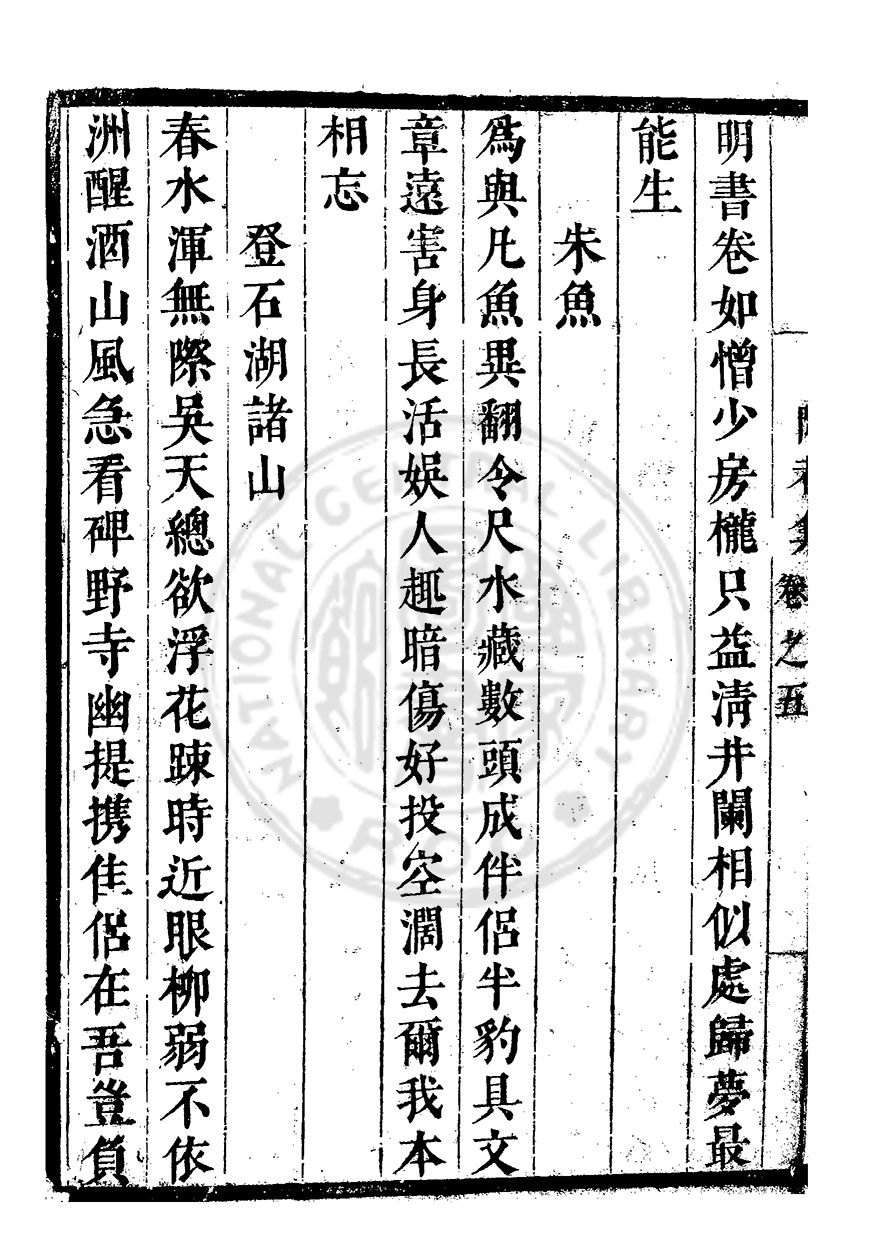 卷之五
明書卷如憎少房櫳只益淸井闌相似處歸夢最
能生
朱魚
爲與凡魚異翻令尺水藏數頭成伴侶半豹具文
章遠害身長活娛人趣暗傷好投空濶去爾我本
相忘
登石湖諸山
春水渾無際吳天總欲浮花踈時近眼柳弱不依
洲醒酒山風急看碑野寺幽提携佳侶在吾豈負
NATIONAL CENTRAL LIBRARY